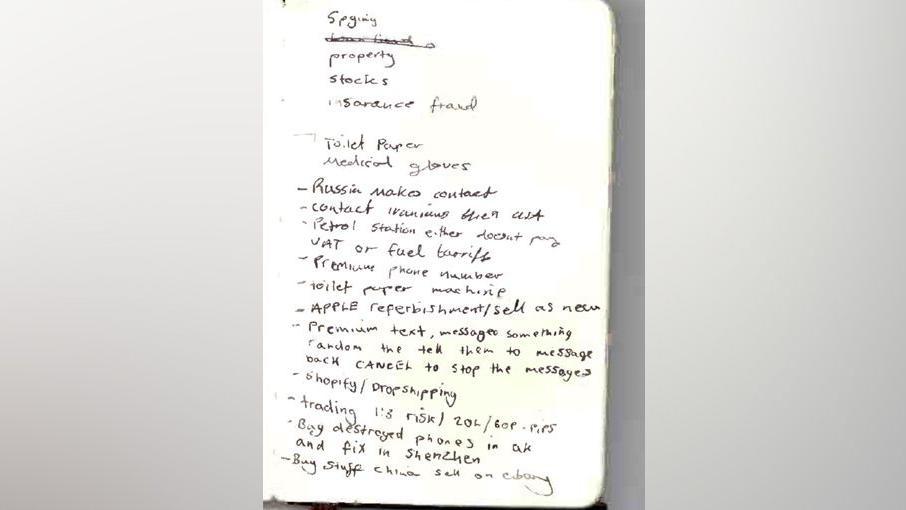 Spying
property
stocks
insarance fraud
Toilet Paper
Medical gloves
- Russia makes contact
- contact iranians then
- Petrol station either doesnt pay
VAT or fuel tarriffs
- Premium phone number
- toilet paper machine
- APPLE referbishment/sell as new
- Premium text, messages something
random the tell them to message
back CANCEL to stop the messages
- Shopify/Dropshipping
- trading 1:3 risk/ 20L/60P-PIPS
- Buy destroyed phones in uk
and fix in Shenzhen
- Buy stuff china sell on ebay